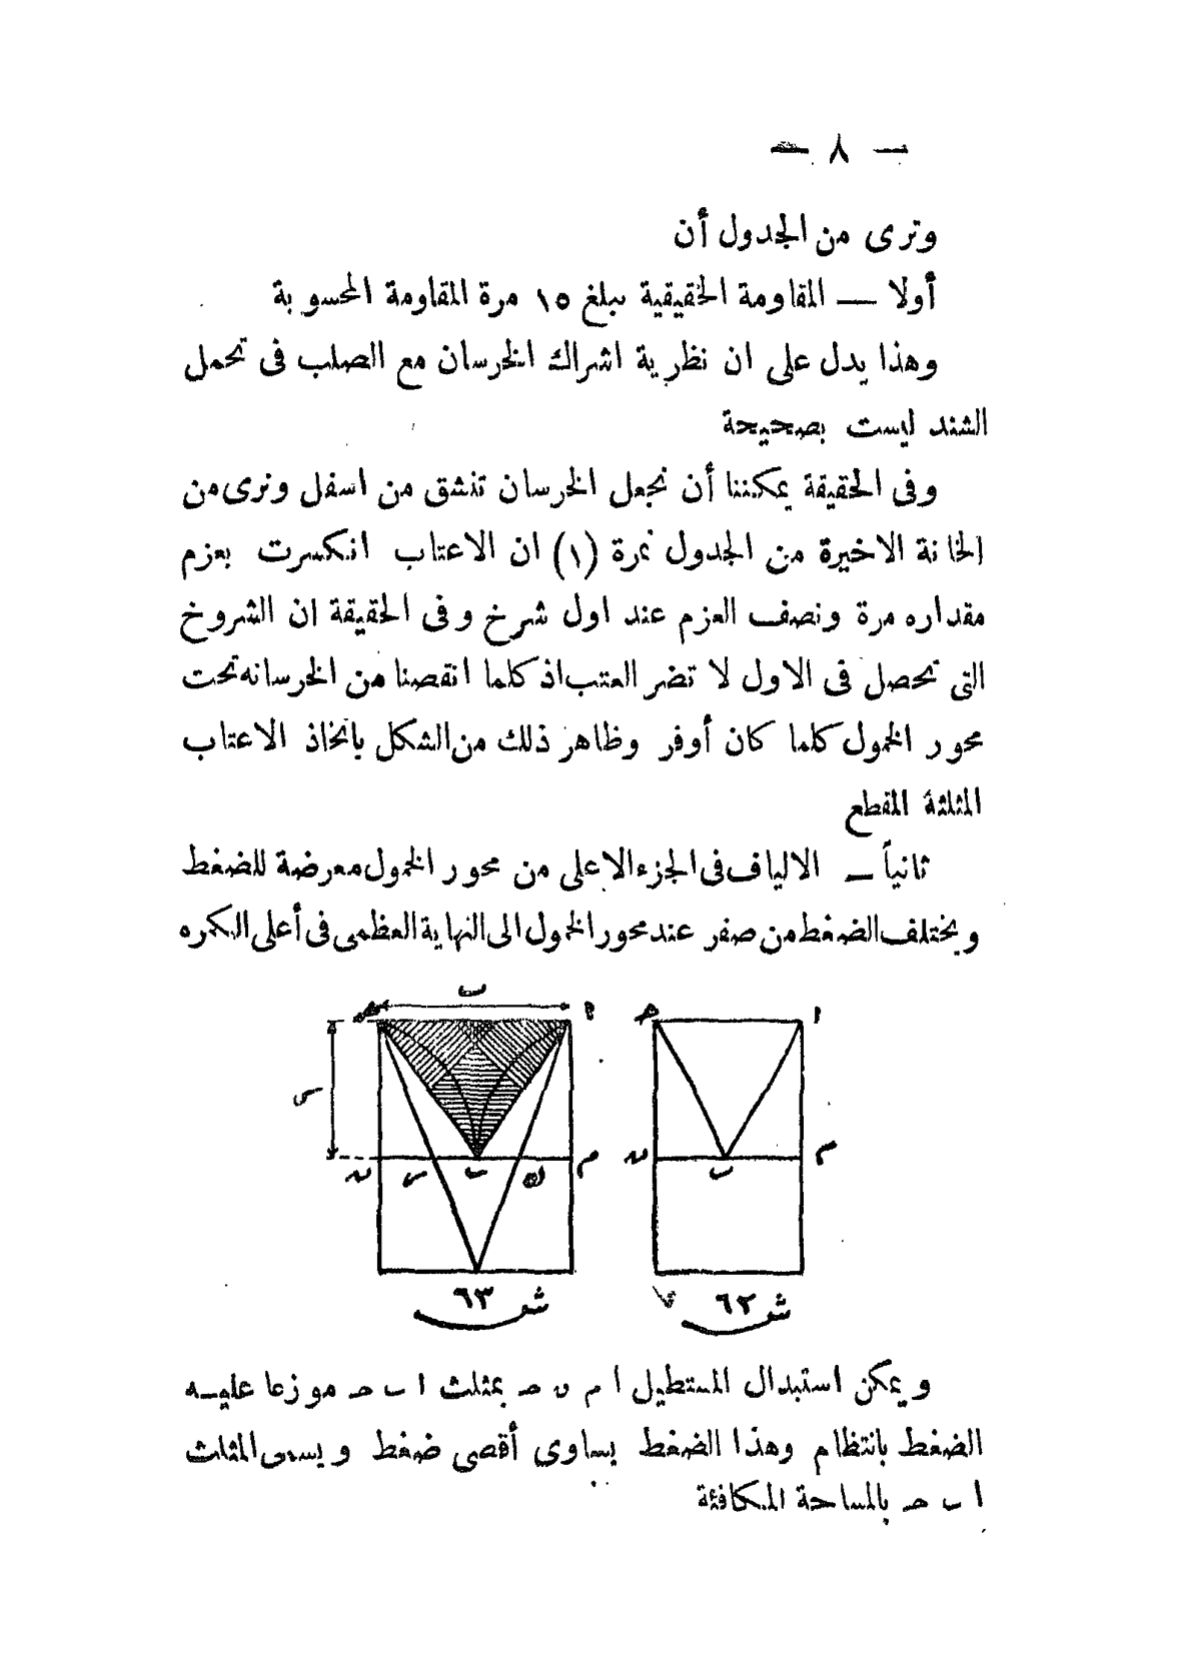 — ٨ —
وترى من الجدول أن
أولا — المقاومة الحقيقية تبلغ ١٥ مرة المقاومة المحسوبة
وهذا يدل على ان نظرية اشراك الخرسان مع الصلب فى تحمل
الشند ليست بصحيحة
وفى الحقيقة يمكننا أن نجعل الخرسان تنشق من اسفل ونرى من
الخانة الاخيرة من الجدول نمرة (١) ان الاعتاب انكسرت بعزم
مقداره مرة ونصف العزم عند اول شرخ وفى الحقيقة ان الشروخ
التى تحصل فى الاول لا تضر العتب اذ كلما انقصنا من الخرسانه تحت
محور الخمول كلما كان أوفر وظاهر ذلك من الشكل باتخاذ الاعتاب
المثلثة المقطع
ثانياً — الالياف فى الجزء الاعلى من محور الخمول معرضة للضغط
ويختلف الضغط من صفر عند محور الخمول الى النهاية العظمى فى أعلى الكمره
ب
ا ح
م ب ن
ش ٦٢
م ب س ن
س
ش ٦٣
ويمكن استبدال المستطيل ا م ن حـ بمثلث ا ب حـ موزعا عليه
الضغط بانتظام وهذا الضغط يساوى أقصى ضغط ويسمى المثلث
ا ب حـ بالمساحة المكافئة